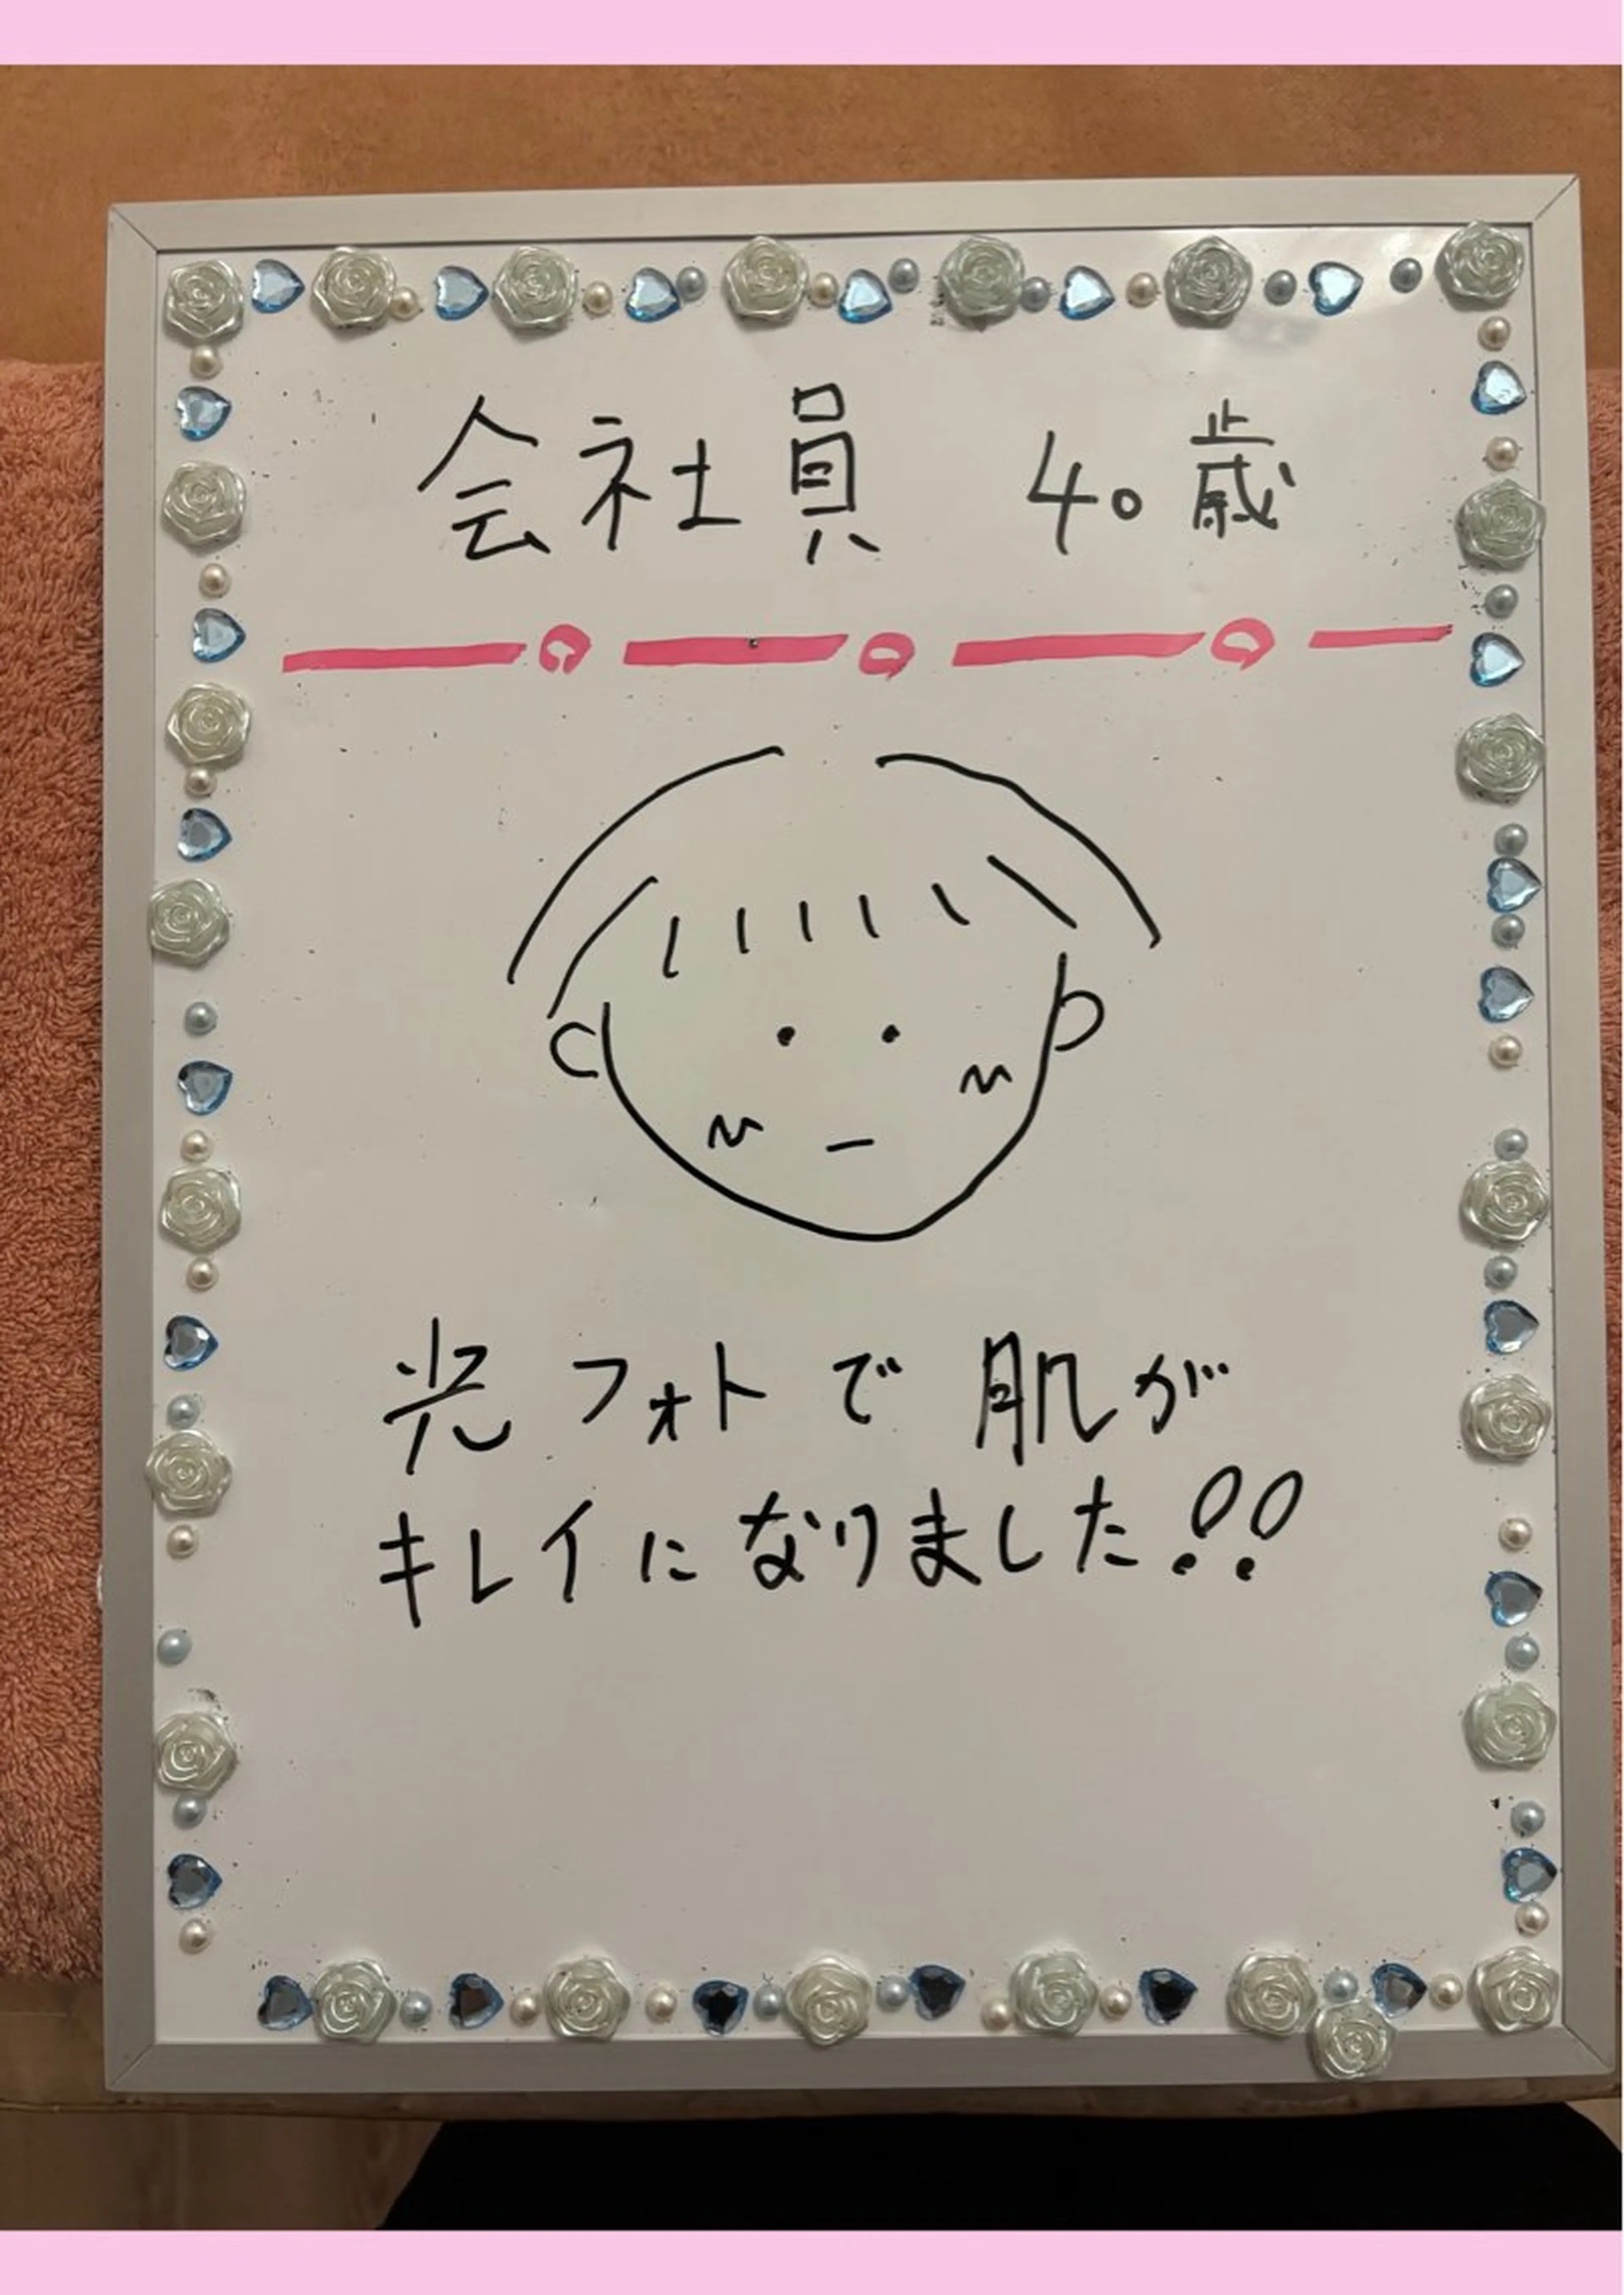 会社員 40歳
光フォトで肌が
キレイになりました!!